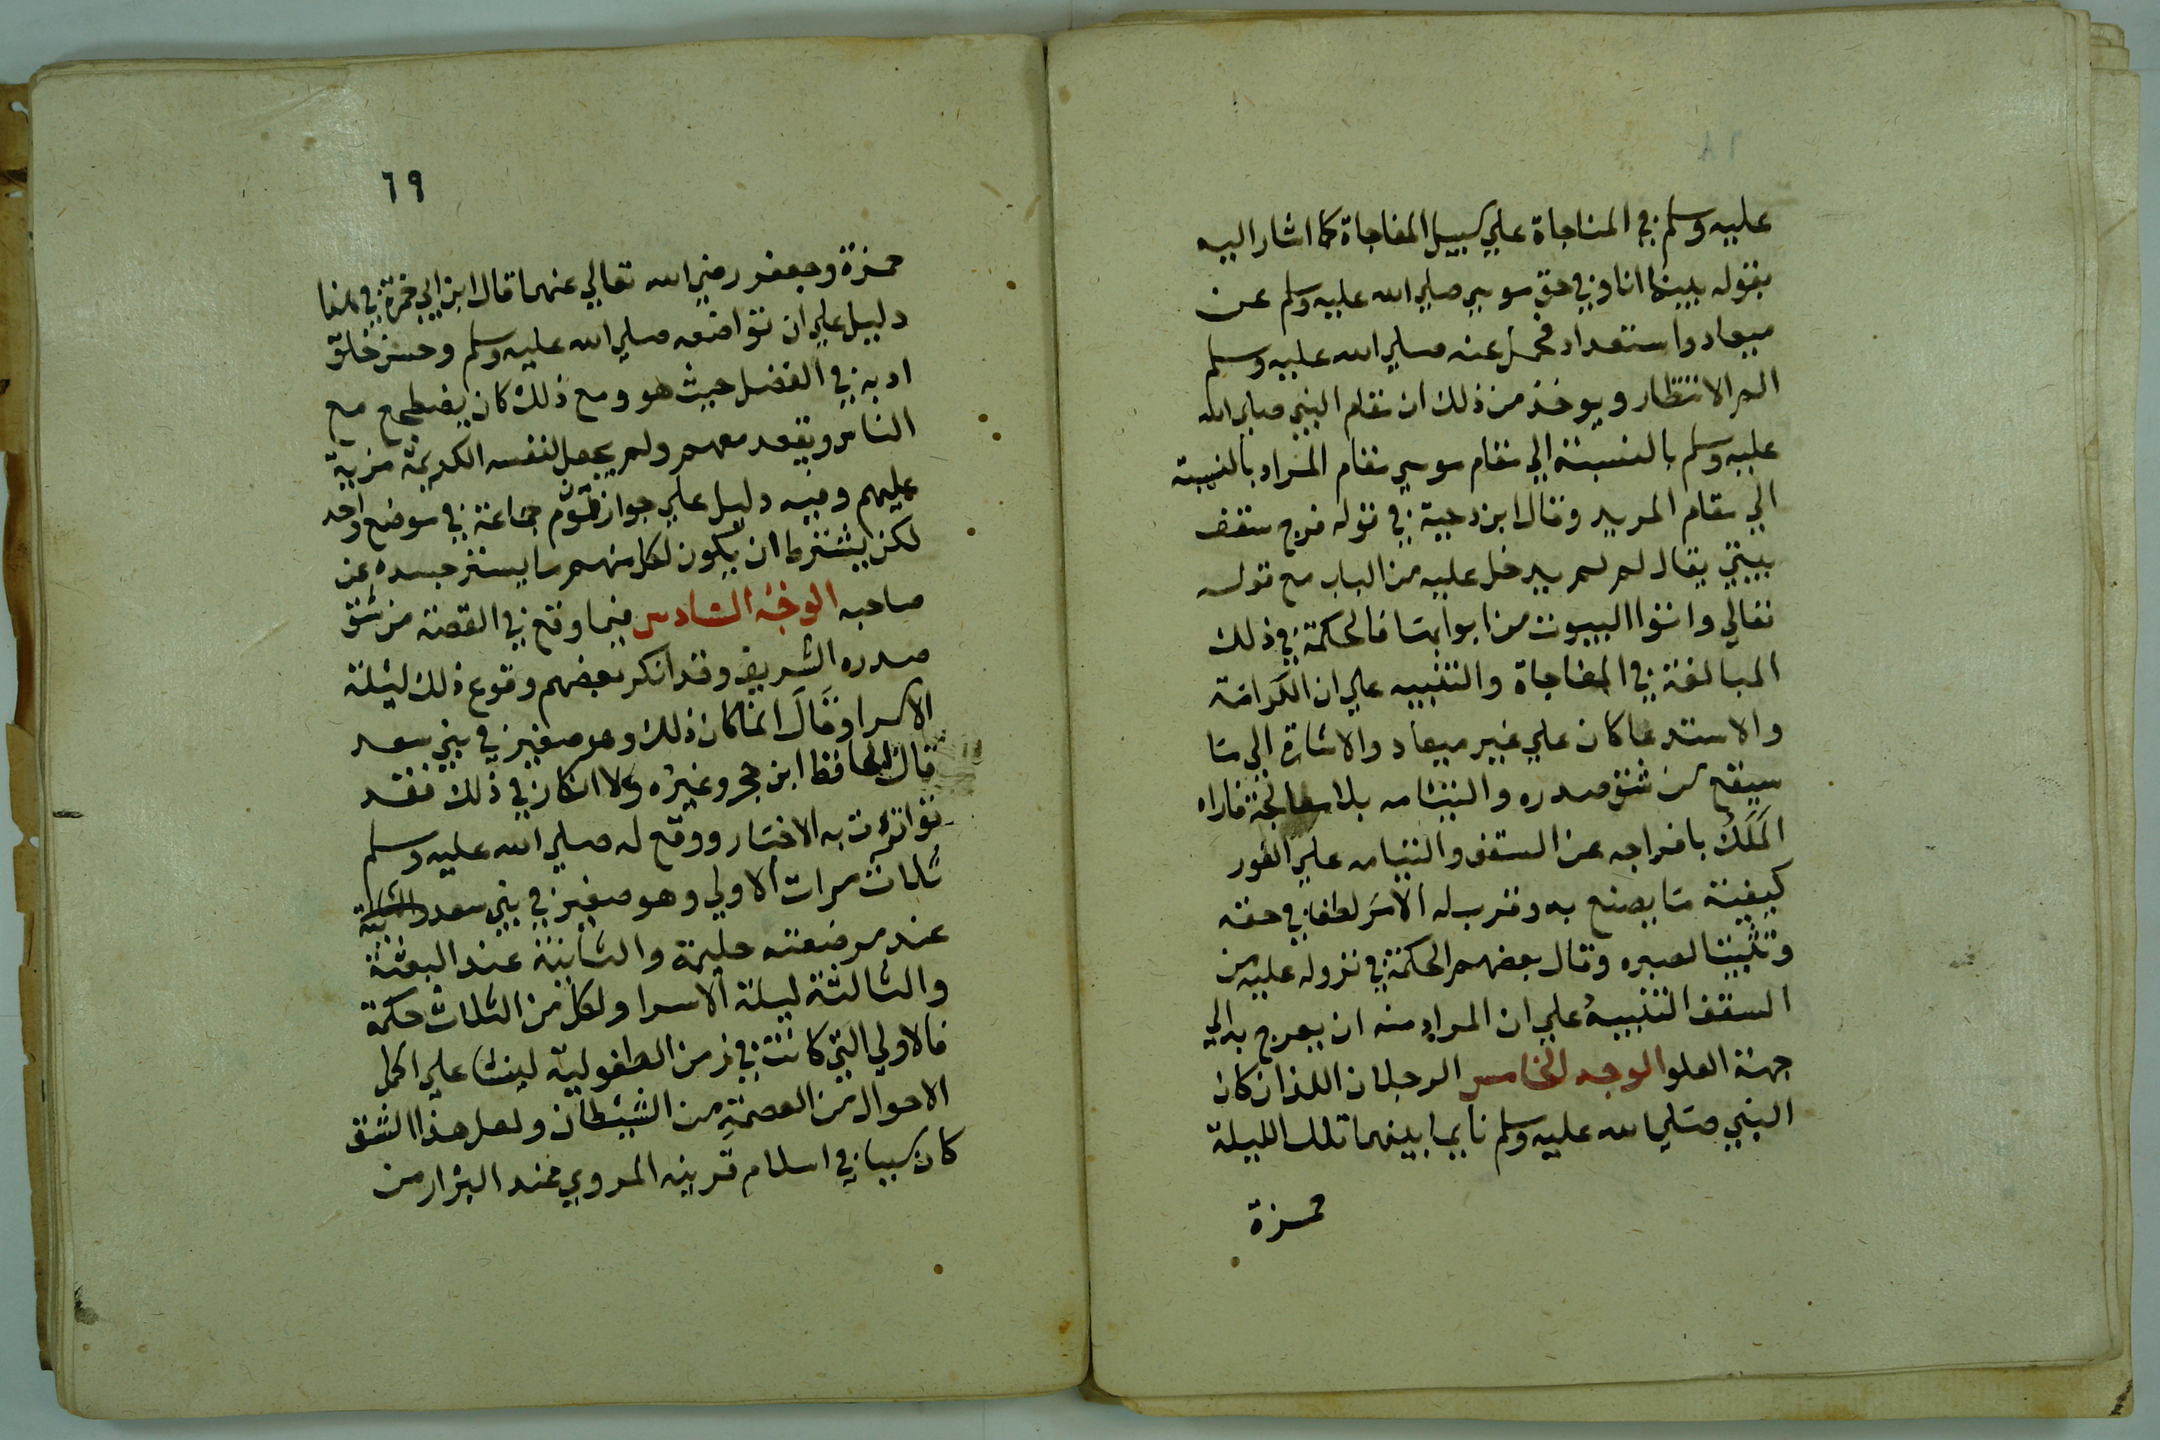 ٦٨
عليه وسلم في المناجاة علي سبيل المفاجاة كما اشار اليه
بقوله بينما انا وفي حق موسي صلي الله عليه وسلم عن
ميعاد واستعداد فحمل عنه صلي الله عليه وسلم
الم الانتظار ويوخذ من ذلك ان مقام النبي صلي الله
عليه وسلم بالنسبة الي مقام موسي مقام المراد بالنسبة
الي مقام المريد وقال ابن دحية في قوله فرج سقف
بيتي يقال لم لم يدخل عليه من الباب مع قوله
تعالي واتوا البيوت من ابوابها فالحكمة في ذلك
المبالغة في المفاجاة والتنبيه علي ان الكرامة
والاستدعا كان علي غير ميعاد والاشارة الي ما
سيقع من شق صدره والتيامه بلا معالجة فاراه
الملك بافراجه عن السقف والتيامه علي الفور
كيفية ما يصنع به وقرب له الامر لطفا في حقه
وتثبيتا لصبره وقال بعضهم الحكمة في نزوله عليه من
السقف التنبيه علي ان المراد منه ان يعرج به الي
جهة العلو الوجه الخامس الرجلان اللذان كان
النبي صلي الله عليه وسلم نايما بينهما تلك الليلة
حمزة
٦٩
حمزة وجعفر رضي الله تعالي عنهما قال ابن ابي جمرة في هذا
دليل علي ان تواضعه صلي الله عليه وسلم وحسن خلق
ادبه في الفضل حيث هو ومع ذلك كان يضطجع مع
الناس ويقعد معهم ولم يجعل لنفسه الكريمة مزية
عليهم وفيه دليل علي جواز نوم جماعة في موضع واحد
لكن يشترط ان يكون لكل منهم ما يستر جسده عن
صاحبه الوجه السادس فيما وقع في القصة من شق
صدره الشريف وقد انكر بعضهم وقوع ذلك ليلة
الاسرا وقال انما كان ذلك وهو صغير في بني سعد
قال الحافظ ابن حجر وغيره ولا انكار في ذلك فقد
تواترت به الاخبار ووقع له صلي الله عليه وسلم
ثلاث مرات الاولي وهو صغير في بني سعد والثانية
عند مرضعته حليمة والثانية عند البعثة
والثالثة ليلة الاسرا ولكل من الثلاث حكمة
فالاولي التي كانت في زمن الطفولية لينشا علي اكمل
الاحوال من العصمة من الشيطان ولعل هذا الشق
كان سببا في اسلام قرينه المروي عند البزار من